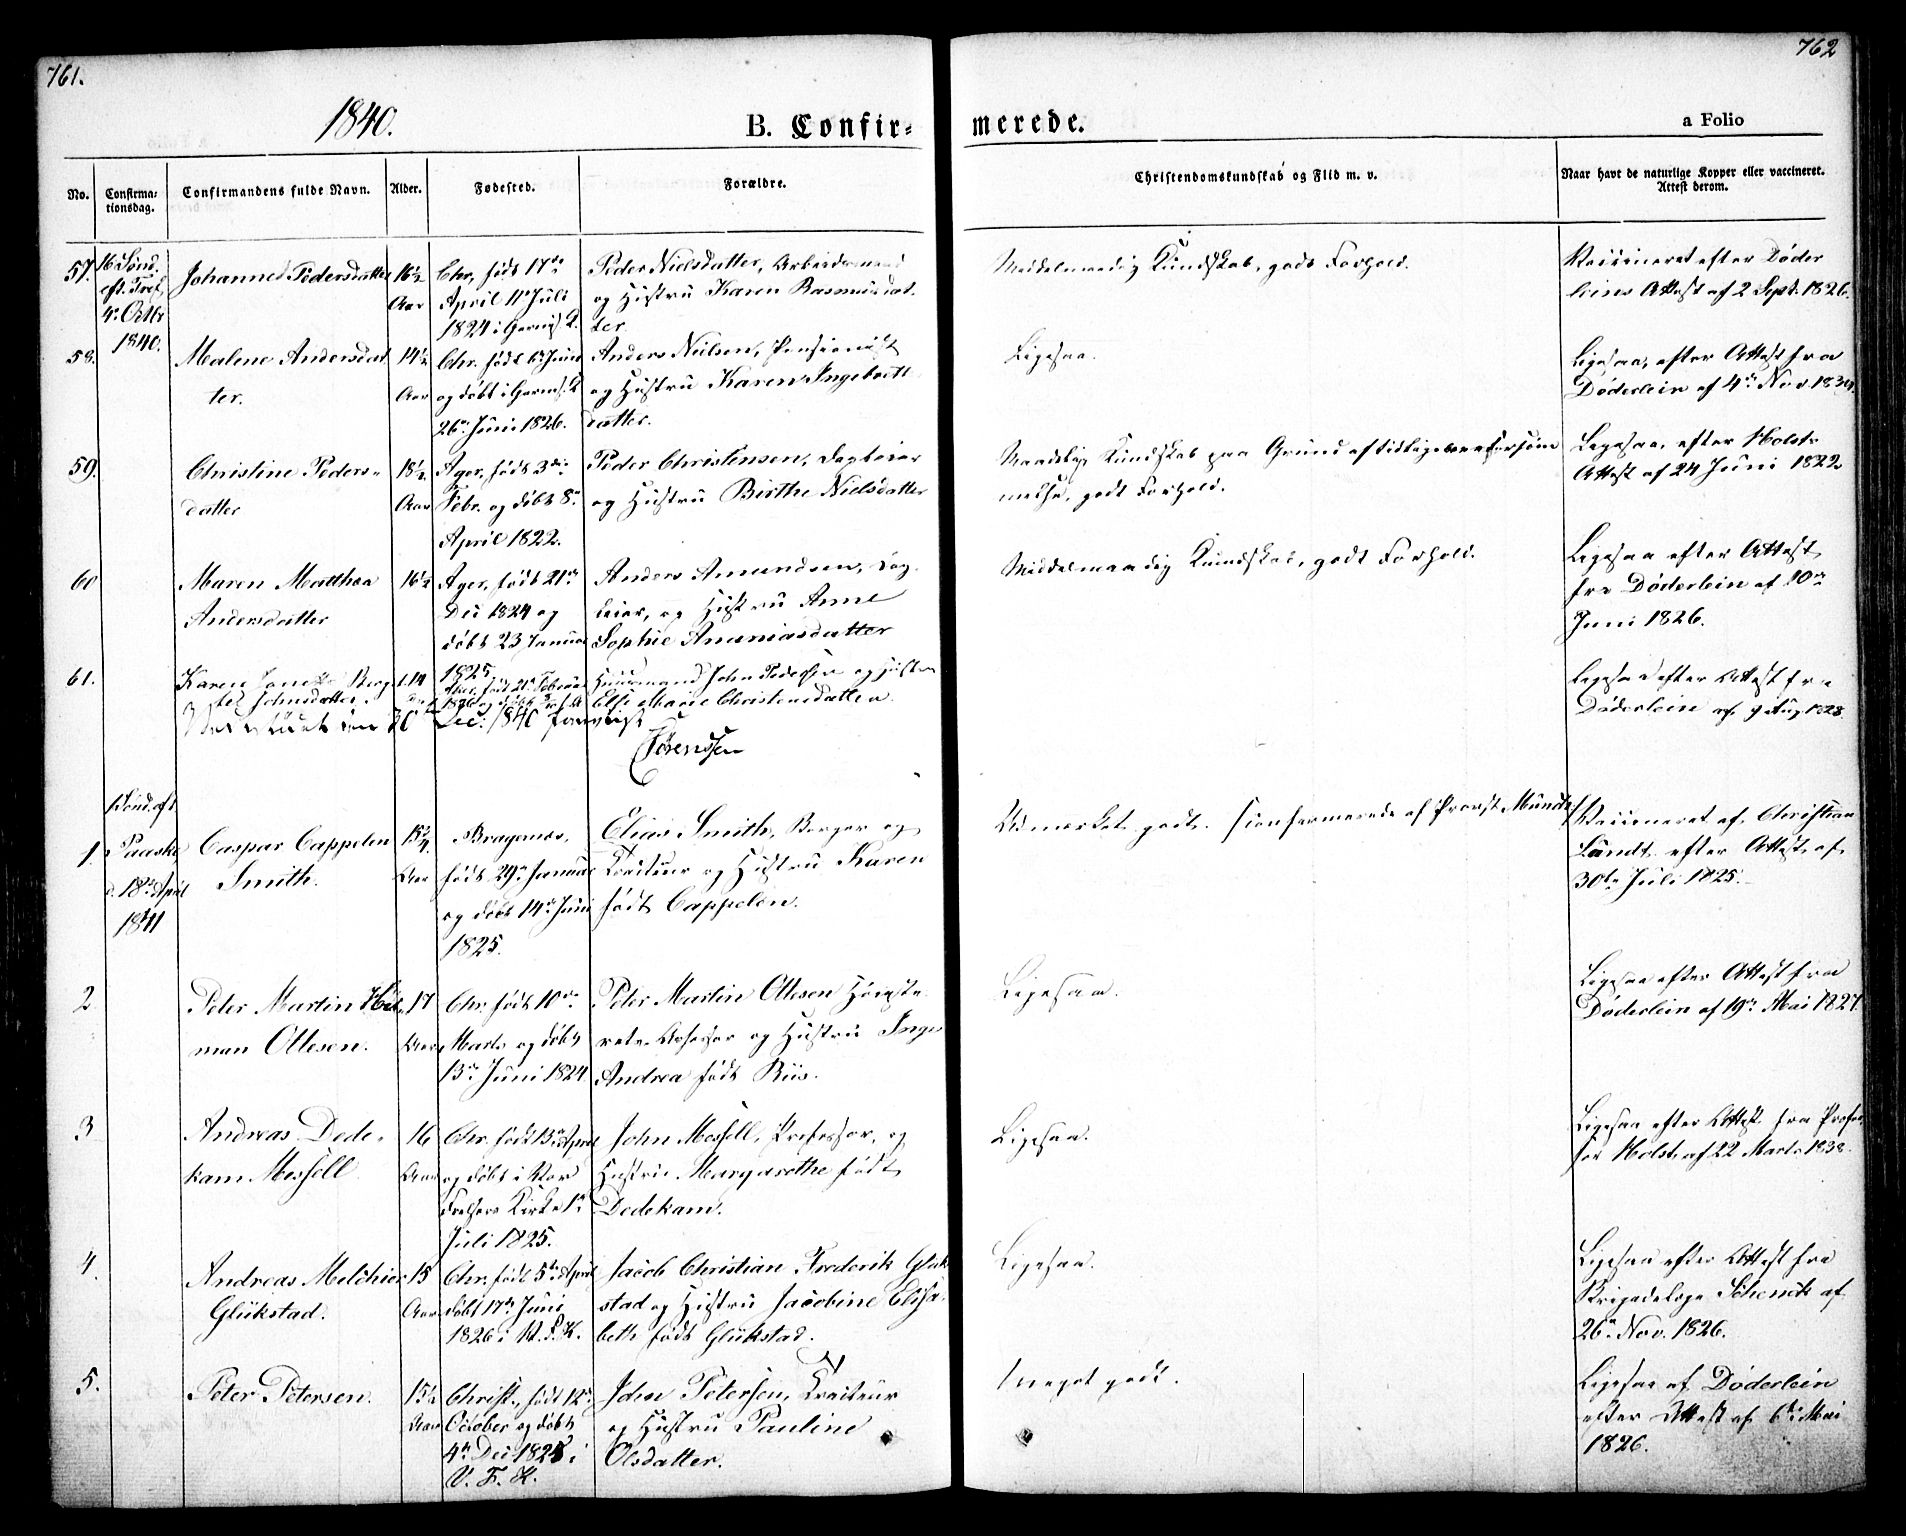 761.
762
1840.
B. Confir-
merede.
a Folio
No.
Confirma-
tionsdag.
Confirmandens fulde Navn.
Alder.
Fødested.
Forældre.
Christendomskundskab og Flid m. v.
Naar havt de naturlige Kopper eller vaccineret.
Attest derom.
57.
16 Sønd.
eft. Tref.
4. Octbr
1840.
Johanne Pedersdatter
16½
Aar
Chr, født 17de
April 11 Juli
1824 i Garnis. K.
Peder Nielsdatter, Arbeidsmand
og Hustru Karen Rasmusdat-
ter.
Middelmaadig Kundskab, godt Forhold.
Vaccineret efter Døder
leins Attest af 2 Sept. 1826.
58.
Malene Andersdat
ter.
14½
Aar
Chr. født 6 Juni
og døbt i Garnis. K
26de Juni 1826.
Anders Nielsen, Pensionist
og Hustru Karen Ingebrett
datter.
Ligesaa.
Ligesaa, efter Attest fra
Døderlein af 4de Nov. 1834.
59.
Christine Peders-
datter
18½
Aar
Ager, født 3die
Febr. og døbt 8de
April 1822.
Peder Christensen, Dagleier
og Hustru Birthe Nielsdatter
Maadelig Kundskab paa Grund af tidligere Forsøm
melse, godt Forhold.
Ligesaa, efter Holsts
Attest af 24 Juni 1822
60
Maren Mathea
Andersdatter
16½
Ager, født 21de
Dec 1824 og
døbt 23 Januar
1825
Anders Amundsen, Dag-
leier, og Hustru Anne
Sophie Ananiasdatter
Middelmaadig Kundskab, godt Forhold.
Ligesaa efter Attest
fra Døderlein af 10de
Juni 1826.
61.
Karen
Johnsdatter.
14
født 21 Februar
1826 og døbt
Huusmand John Pedersen og Hustru
Else Marie Christensdatter.
Ligesaa efter Attest fra
Døderlein af 9 Aug 1828
den 30 Dec: 1840
Sørenssen
1 Sønd. eft
Paaske
d. 18de April
1841
1.
Caspar Cappelen
Smith.
15¼
Aar
Bragernæs,
født 29de Januar
og døbt 14de Juni
1825.
Elias Smith, Borger og
Traiteur og Hustru Karen
født Cappelen.
Udmærket godt. confirmerede af Provst Munch
Vaccineret af Christian
Lundt efter Attest af
30te Juli 1825.
2
Peter Martin
man Ottesen.
17
Aar
Chr. født 10de
Marts og døbt
13de Juni 1824
Peter Martin Ottesen Høieste-
rets-Assessor og Hustru Inge
Andrea født Riis.
Ligesaa.
Ligesaa efter Attest fra
Døderlein af 19de Mai 1827.
3
Andreas Dede-
kam Messell
16
Aar
Chr. født 13de April
og døbt i Vor
Frelsers Kirke 1ste
Juli 1825.
John Messell, Professor, og
Hustru Margarethe født
Dedekam.
Ligesaa.
Ligesaa efter Attest fra Profes
sor Holst af 22 Marts 1838.
4.
Andreas Melchior
Glükstad.
15
Aar
Chr. født 5te April
døbt 17de Juni
1826 i V. F. K.
Jacob Christian Frederik Glük
stad og Hustru Jacobine Elisa-
beth født Glükstad.
Ligesaa.
Ligesaa efter Attest fra
Brigadelæge Schenck af
26de Nov. 1826.
5.
Peter Petersen.
15½
Aar
Christ., født 12te
October og døbt
4de Dec 1825 i
V. F. K.
John Petersen, Traiteur
og Hustru Pauline
Olsdatter.
meget godt.
Ligesaa af Døderlein
efter Attest af 6te Mai
1826.